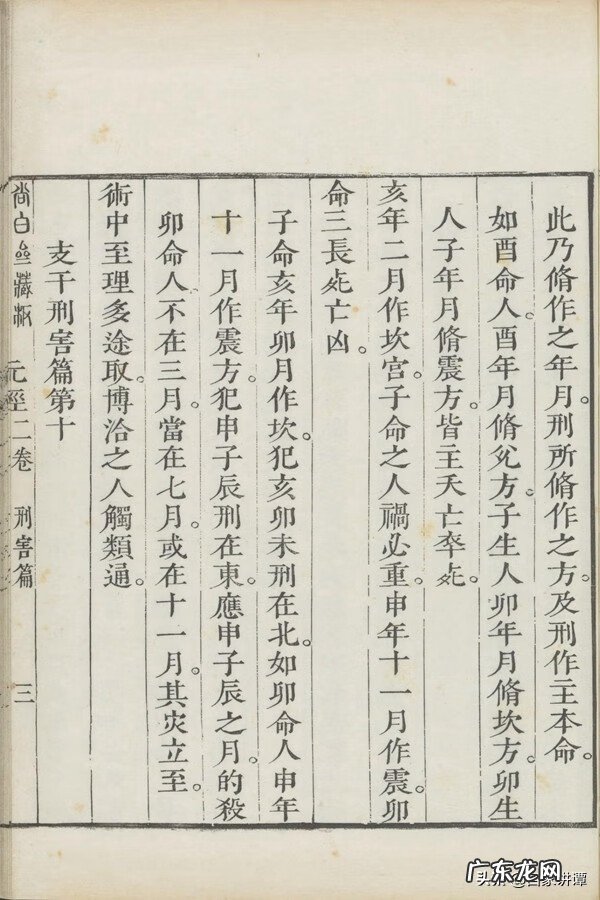 此乃脩作之年月。刑所脩作之方。及刑作主本命。
如酉命人。酉年月脩兊方。子生人卯年月脩坎方。卯生
人子年月脩震方。皆主夭亡卒死。
亥年二月作坎宫。子命之人禍必重。申年十一月作震。卯
命三長死亡凶。
子命亥年卯月作坎。犯亥卯未刑在北。如卯命人申年
十一月作震方。犯申子辰刑在東。應申子辰之月。的殺
卯命人。不在三月。當在七月。或在十一月。其灾立至。
術中至理多途取。博洽之人觸類通。
支干刑害篇第十
尚白齋藏板
元經二卷
刑害篇
三
广东龙网